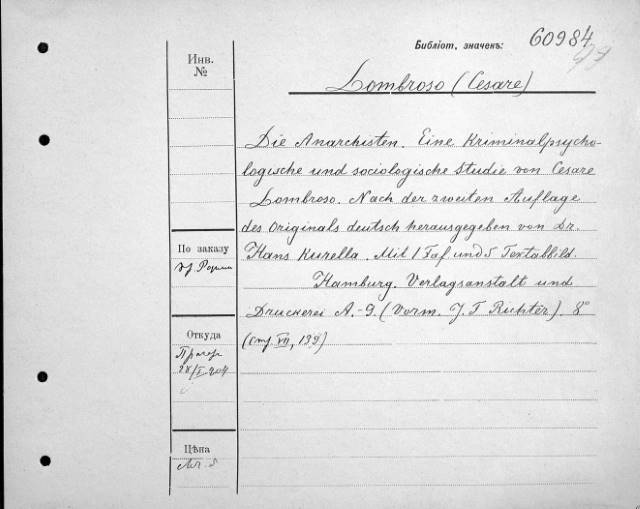 Библіот. значекъ: 60984
Инв.
№
Lombroso (Cesare)
Die Anarchisten. Eine Kriminalpsycho-
logische und sociologische Studie von Cesare
Lombroso. Nach der zweiten Auflage
des Originals deutsch herausgegeben von Dr.
Hans Kurella. Mit 1 Taf. und 5 Textabbild.
Hamburg. Verlagsanstalt und
Druckerei A.-G. (Vorm. J. F. Richter). 8°
(стр. VII, 139)
По заказу
Откуда
Цѣна